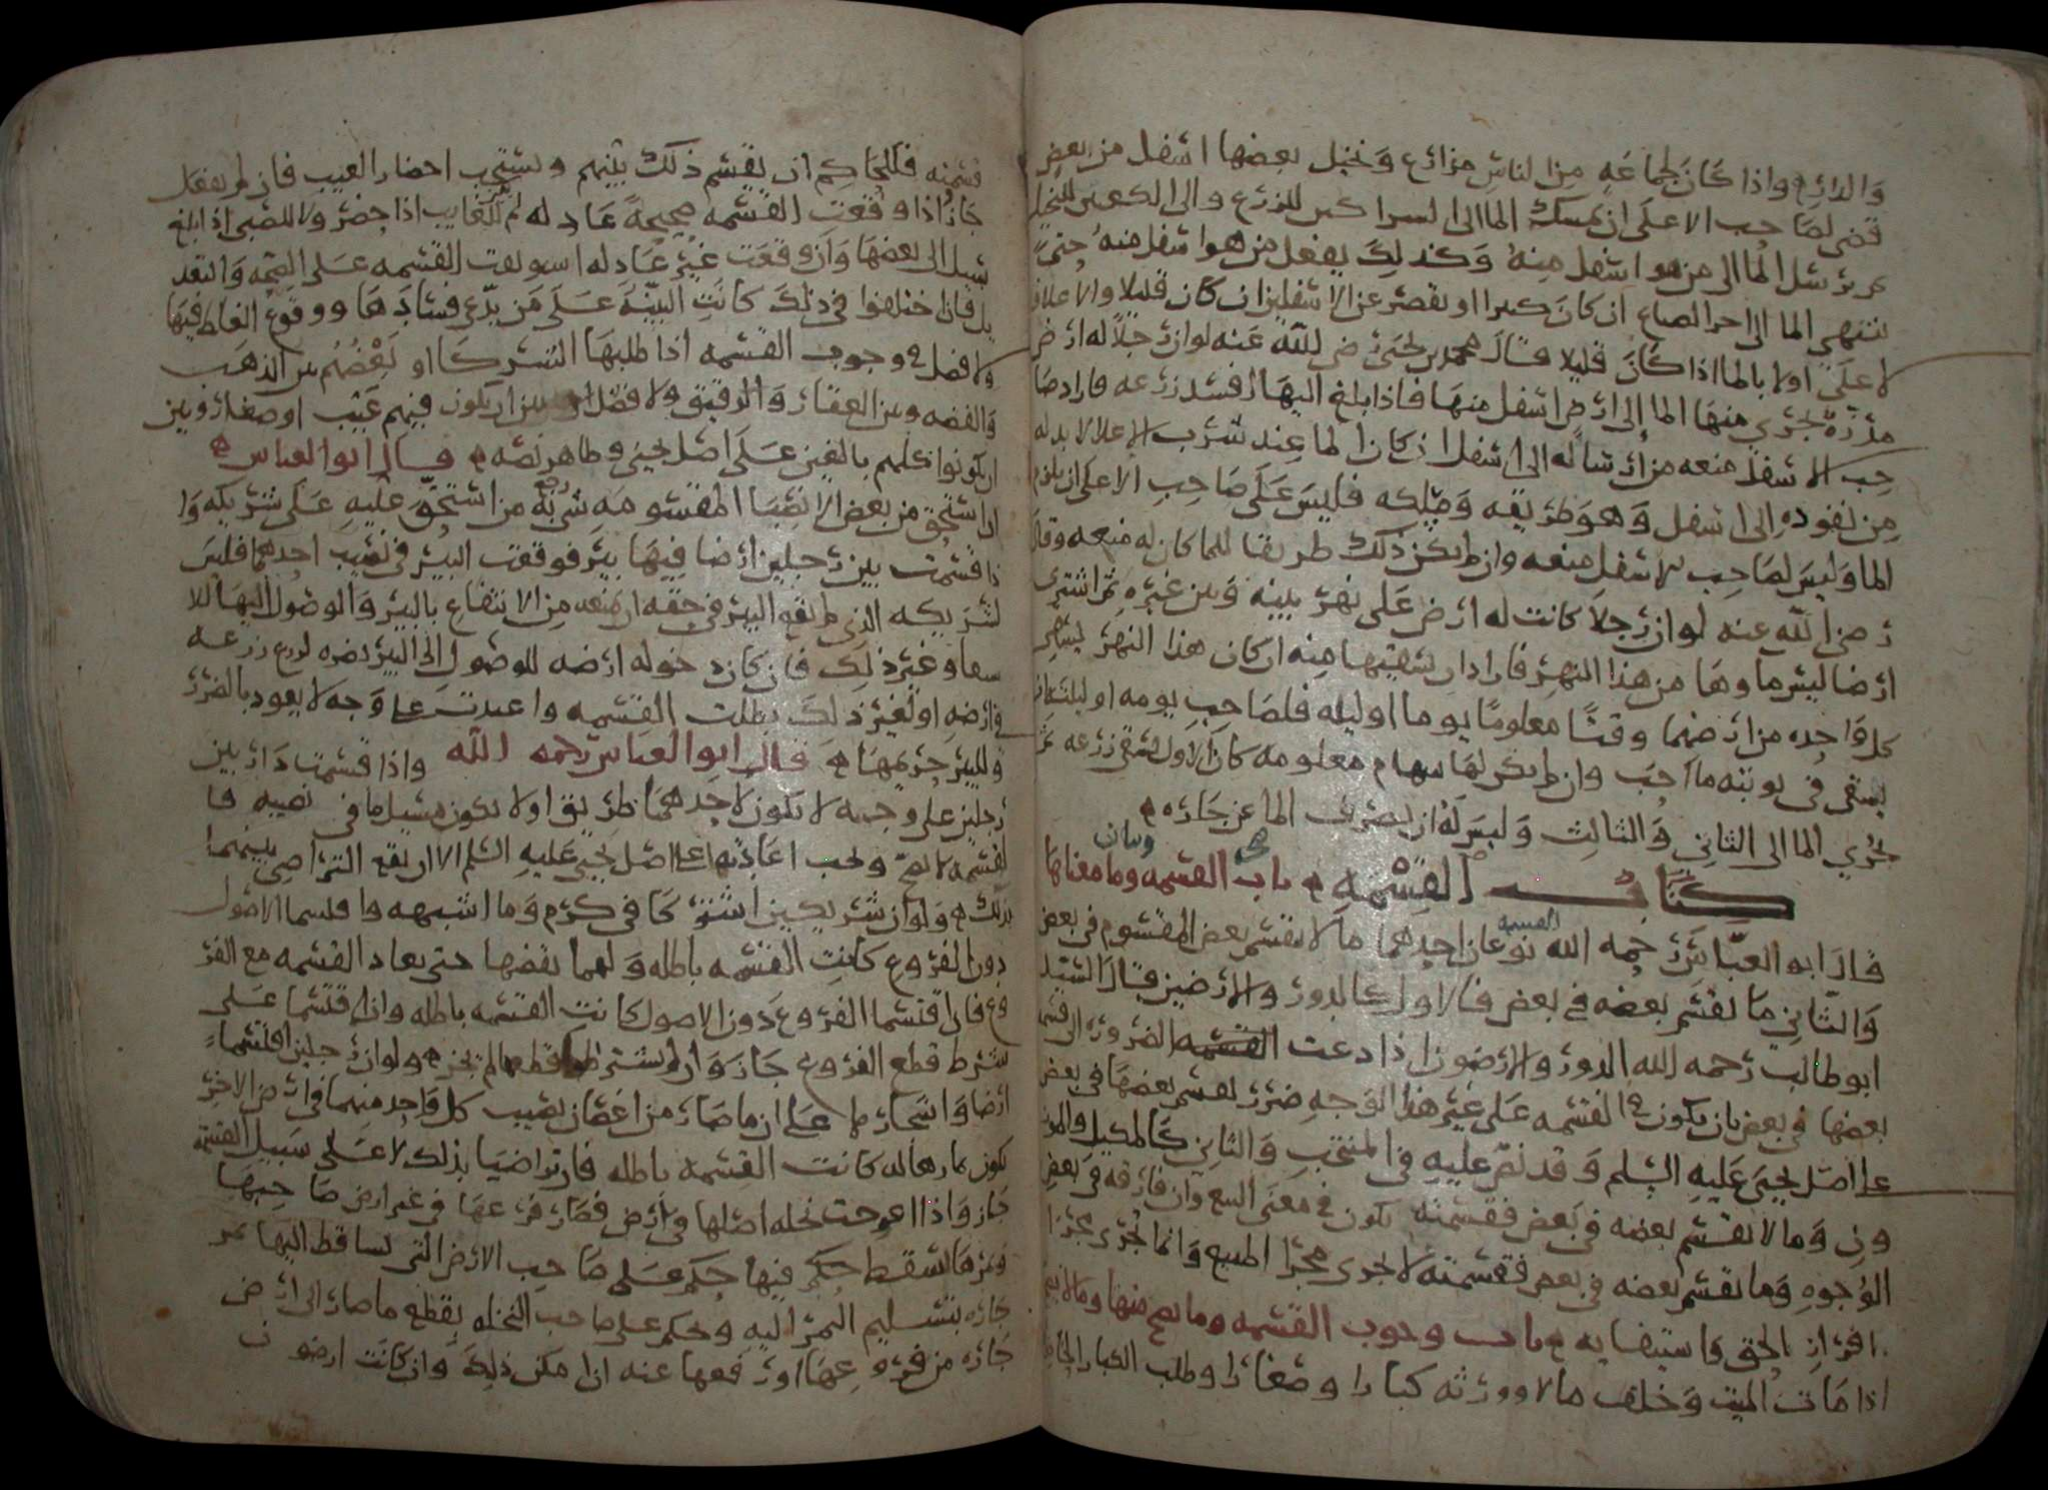 والدائح واذا كان لجماعه من الناس مزارع ونخيل بعضها اسفل من بعض
قضى لصاحب الاعلى ان يمسك الما الى الشراكين للزرع والى الكعبين للنخل
ثم يرسل الما الى من هو اسفل منه وكذلك يفعل من هو اسفل منه حتى
ينتهي الما الى احر الضياع ان كان كثيرا او يقصر عن الاسفلين ان كان قليلا والاعلى فا
لاعلى اولا بالما اذا كان قليلا قال محمد بن يحيى رضي الله عنه لو ان رجلا له ارض
مدره يجري منها الما الى ارض اسفل منها فاذا بلغ اليها افسد زرعه فاراد صا
حب الاسفل منعه من ارساله الى اسفل ان كان الما عند شرب الاعلا لا بد له
من نفوده الى اسفل وهو طريقه ومسلكه فليس على صاحب الاعلى ان يلزم
الما وليس لصاحب الاسفل منعه وان لم يكن ذلك طريقا للما كان له منعه وقال
رضي الله عنه لو ان رجلا كانت له ارض على نهر بينه وبين غيره ثم اشترى
ارضا ليس ماوها من هذا النهر فاراد ان يسقيها منه ان كان هذا النهر يسقى
كل واحده من ارضهما وقتا معلوما يوما او ليله فلصاحب يومه او ليلته ان
يسقي في نوبته ما احب وان لم يكن لها سهام معلومه كان الاول يسقي زرعه ثم
يجري الما الى الثاني والثالث وليس له ان يصرف الما عن جاره
كتاب القسمه باب القسمه وما معناها
وبيان
هي
قال ابو العباس رحمه الله القسمه نوعان احدهما ما لا يقسم بعض المقسوم في بعض
والثاني ما يقسم بعضه في بعض فالاول كالدور والارضين قال السيد
ابو طالب رحمه الله الدور والارضون اذا دعت القسمه الضروره الى قسمه
بعضها في بعض بان يكون في القسمه على غير هذا الوجه ضرر يقسم بعضها في بعض
على اصل يحيى عليه السلم وقد نص عليه في المنتخب والثاني كالمكيل والموز
ون وما لا يقسم بعضه في بعض فقسمته يكون في معنى البيع وان فارقه في بعض
الوجوه وما يقسم بعضه في بعض فقسمته لا تجري مجرا المبيع وانما تجري مجرا
افراز الحق واستيفايه باب وجوب القسمه وما يصح منها وما لا يصح
اذا مات الميت وخلف مالا وورثه كبارا وصغارا وطلب الكبار الحاكم
قسمته فللحاكم ان يقسم ذلك بينهم ويستحب احضار الغيب فان لم يفعل
جاز اذا وقعت القسمه صحيحة عادله ثم للغايب اذا حضر ولا للصبي اذا بلغ
سبيل الى نقضها وان وقعت غير عادله استونفت القسمه على القيمه والتعد
يل فان اختلفوا في ذلك كانت البينه على من يدعي فسادها ووقوع الغلط فيها
ولا فصل في وجوب القسمه اذا طلبها الشركا او بعضهم بين الذهب
والفضه وبين العقار والرقيق ولا فصل بين ان يكون فيهم غيب او صغار وبين
ان يكونوا كلهم بالغين على اصل يحيى وظاهر نصه قال ابو العباس
ان استحق من بعض الانصبا المقسومه شي رجع من استحق عليه على شريكه وا
ذا قسمت بين رجلين ارضا فيها بير فوقعت البير في نصيب احدهما فليس
لشريكه الذي لم تقع البير في حقه ان يمنعه من الانتفاع بالبير والوصول اليها للا
سقا وغير ذلك فان كان دخوله ارضه للوصول الى البير يضره لزرع زرعه
في ارضه او لغير ذلك بطلت القسمه واعيدت على وجه لا يعود بالضرر
وللبير حريمها قال ابو العباس رحمه الله واذا قسمت دار بين
رجلين على وجه لا يكون لاحدهما طريق او لا يكون مسيل ما في نصيبه فا
لقسمه لا تصح وتجب اعادتها على اصل يحيى عليه السلم الا ان يقع التراضي بينهما
بذلك ولو ان شريكين اشتركا في كرم وما اشبهه واقتسما الاصول
دون الفروع كانت القسمه باطله ولهما نقضها حتى تعاد القسمه مع الفر
وع فان اقتسما الفروع دون الاصول كانت القسمه باطله وان اقتسما على
شرط قطع الفروع جاز وان لم يشترطا قطعها لم يجز ولو ان رجلين اقتسما
ارضا واشجارا على ان ما صار من اغصان نصيب كل واحد منهما في ارض الاخر
يكون ثمارها له كانت القسمه باطله فان تراضيا بذلك لا على سبيل القسمه
جاز واذا اعوجت نخله اصلها في ارض فصار فرعها في غير ارض صاحبها
وثمرها يسقط حكم فيها حكم على صاحب الارض التي يساقط اليها ثمر
جاره بتسليم الثمر اليه وحكم على صاحب النخله بقطع ما صار الى ارض
جاره من فروعها او رفعها عنه اذا امكن ذلك وان كانت ارضون